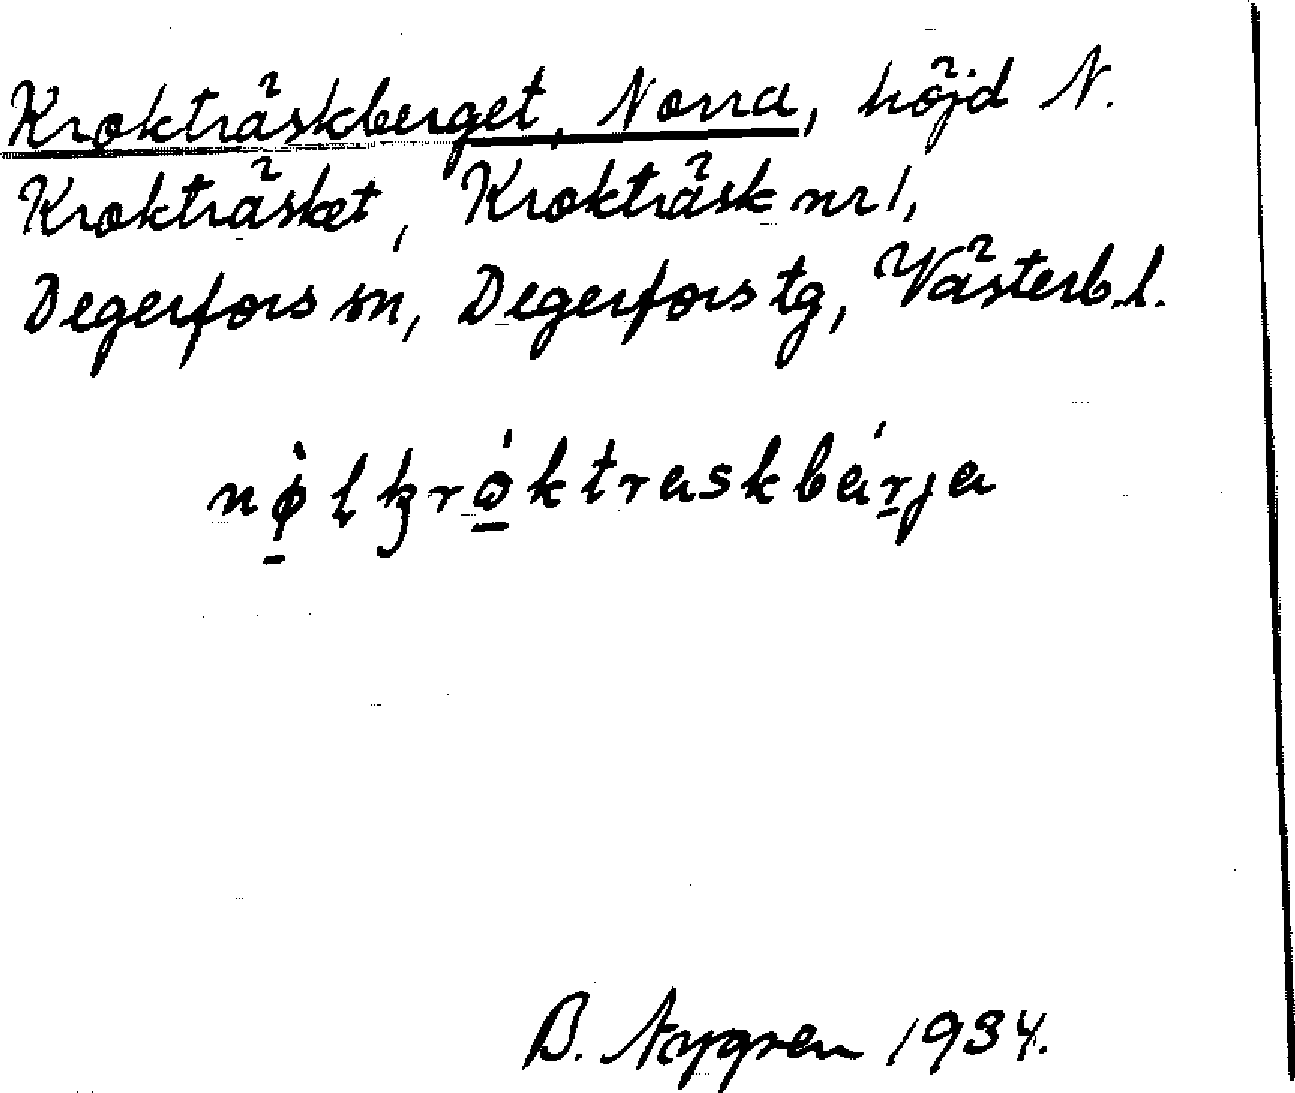 Krokträskberget, Norra, höjd N.
Krokträsket, Krokträsk nr 1,
Degerfors sn, Degerfors tg, Västerb. l.
B. Nygren 1934.